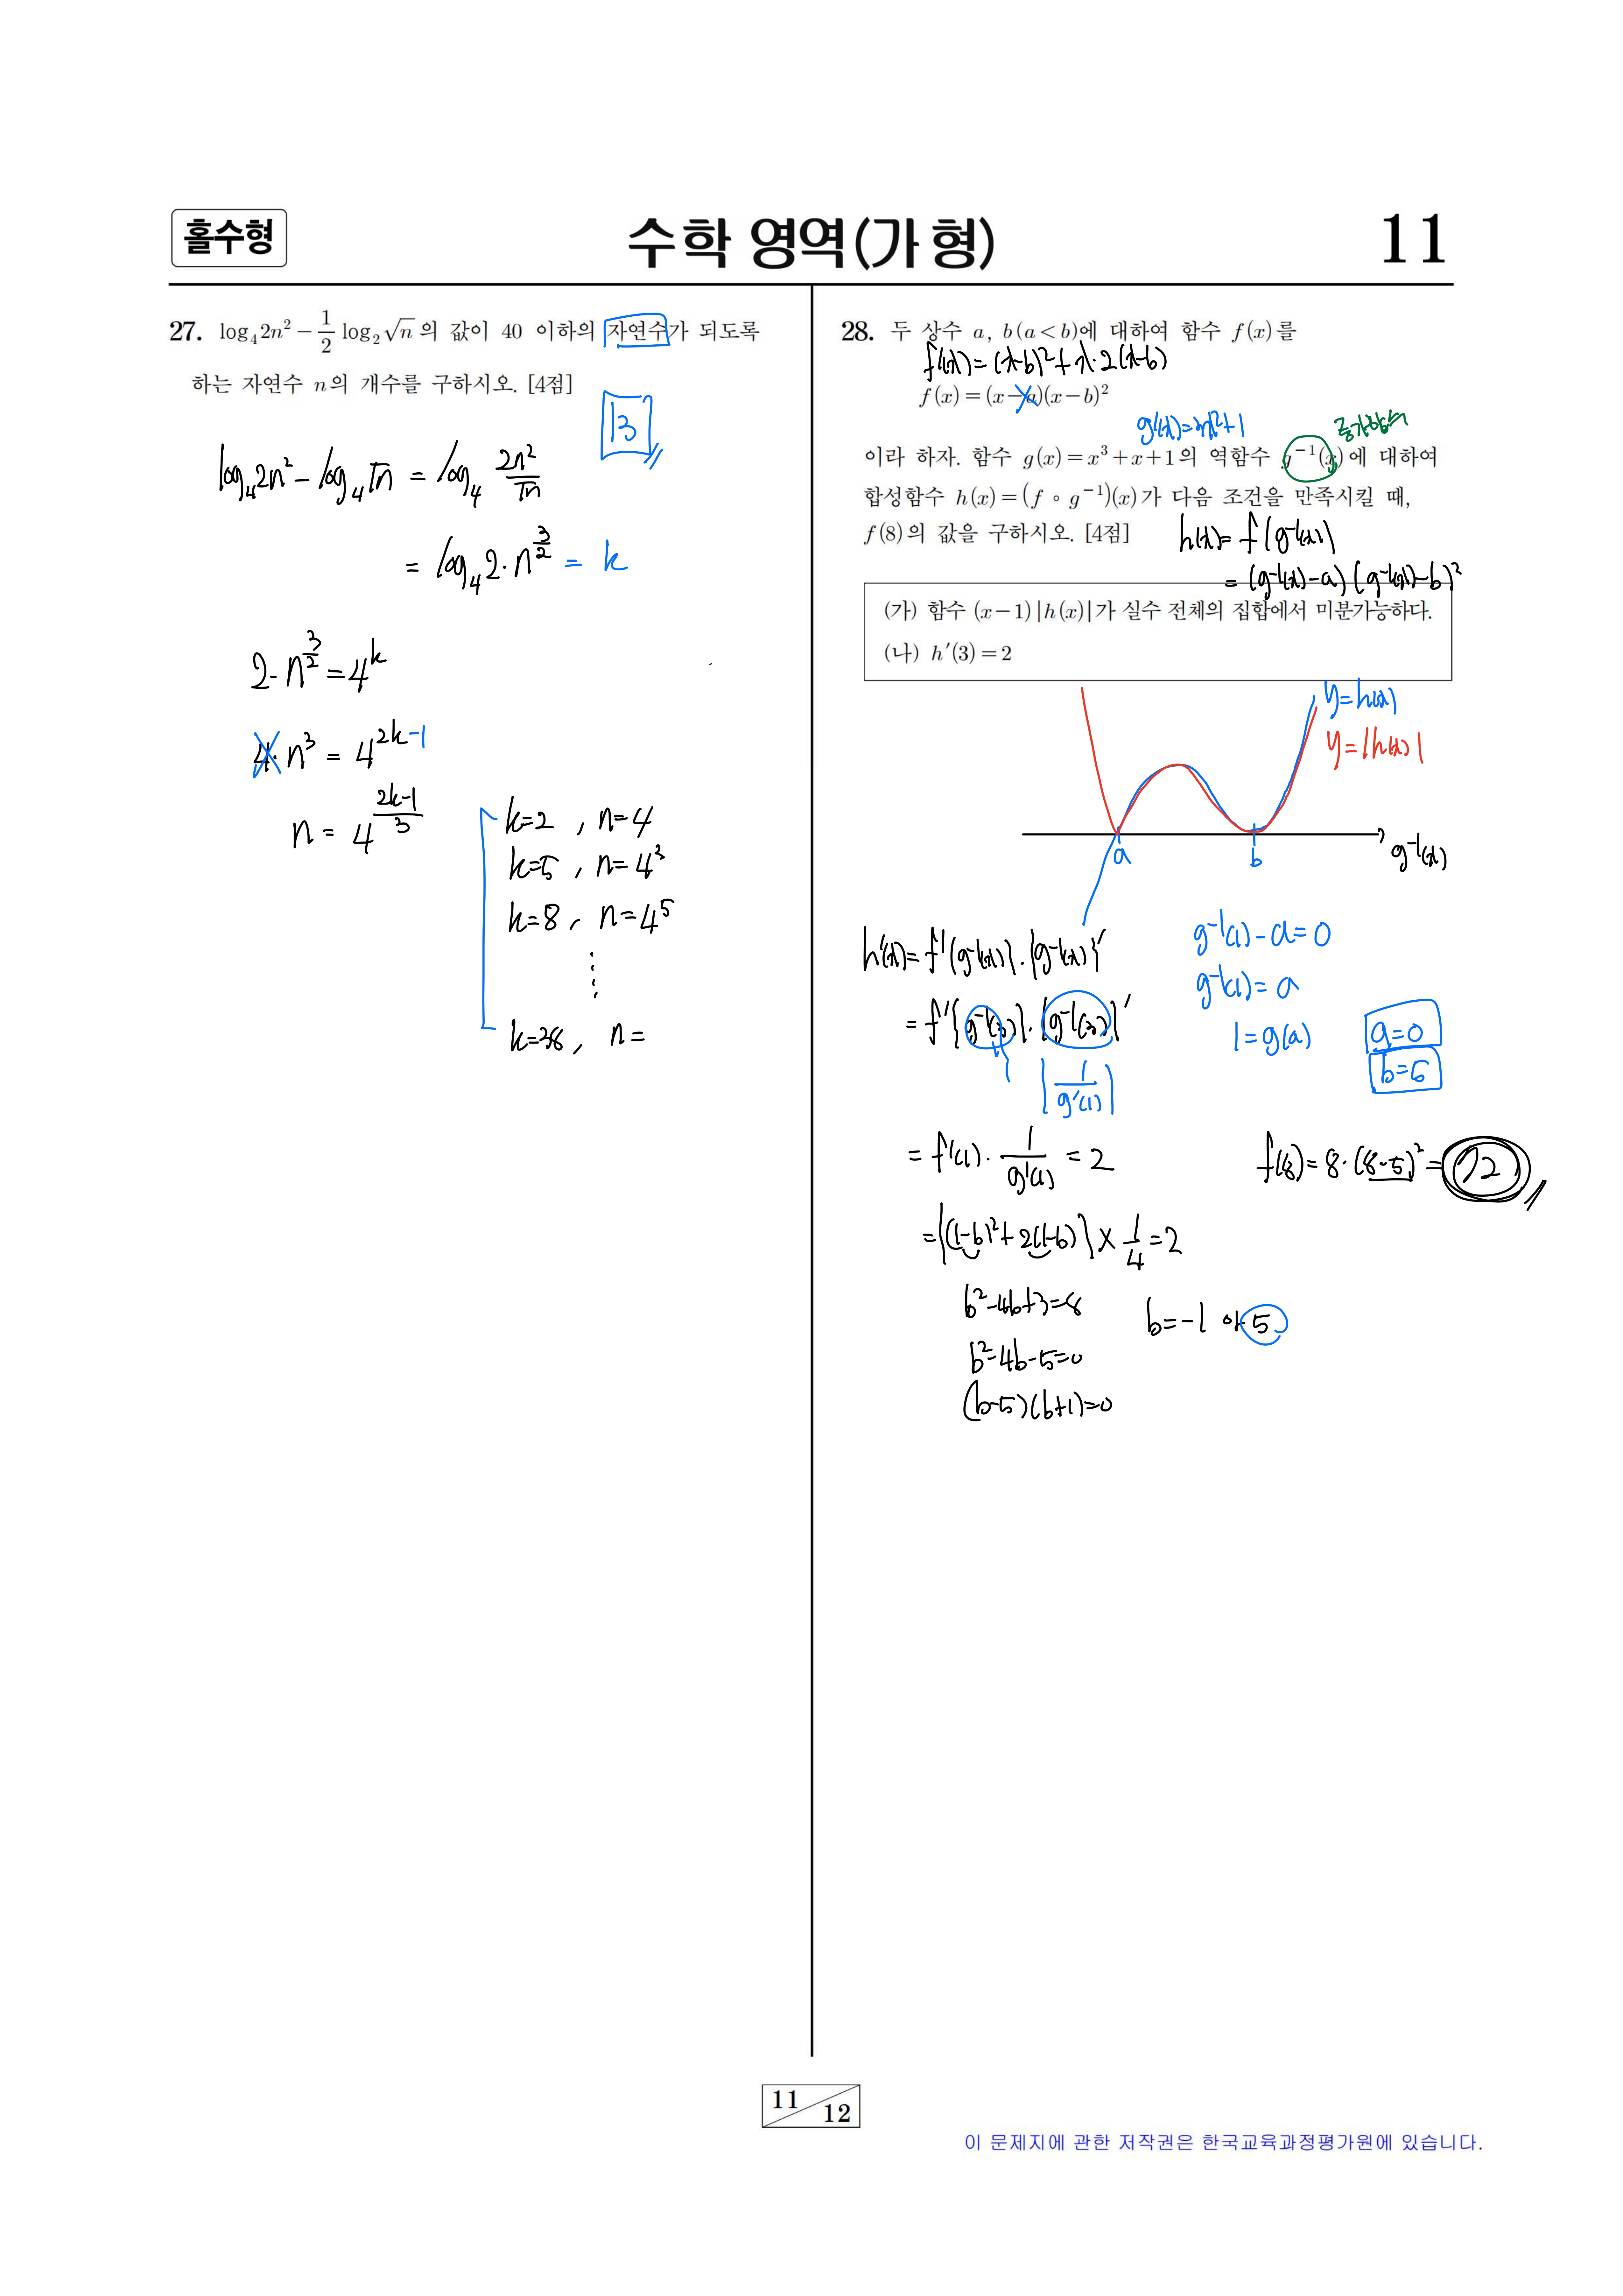 홀수형
수학 영역(가 형)
11
27. log₄2n² − 1/2 log₂√n 의 값이 40 이하의 자연수가 되도록
하는 자연수 n의 개수를 구하시오. [4점]
13
log₄2n² − log₄√n = log₄ 2n²/√n
= log₄2·n^(3/2) = k
2·n^(3/2) = 4^k
4·n³ = 4^(2k-1)
n = 4^((2k-1)/3)
k=2 , n=4
k=5 , n=4³
k=8 , n=4⁵
⋮
k=38, n=
28. 두 상수 a, b(a<b)에 대하여 함수 f(x)를
f'(x)=(x-b)²+x·2(x-b)
f(x)=(x−a)(x−b)²
g'(x)=3x²+1
증가함수
이라 하자. 함수 g(x)=x³+x+1의 역함수 g⁻¹(x)에 대하여
합성함수 h(x)=(f∘g⁻¹)(x)가 다음 조건을 만족시킬 때,
f(8)의 값을 구하시오. [4점]
h(x)= f(g⁻¹(x))
= (g⁻¹(x)-a)(g⁻¹(x)-b)²
(가) 함수 (x−1)|h(x)|가 실수 전체의 집합에서 미분가능하다.
(나) h′(3)=2
y=h(x)
y=|h(x)|
a
b
g⁻¹(x)
h'(x)=f'(g⁻¹(x))·{g⁻¹(x)}'
= f'{g⁻¹(3)}·{g⁻¹(3)}'
1
{1/g'(1)}
= f'(1)·1/g'(1) = 2
={(1-b)²+2(1-b)}×1/4=2
b²-4b+3=8
b²-4b-5=0
(b-5)(b+1)=0
b=-1 or 5
g⁻¹(1)-a=0
g⁻¹(1)=a
1=g(a)
a=0
b=5
f(8)=8·(8-5)²=72
11
12
이 문제지에 관한 저작권은 한국교육과정평가원에 있습니다.